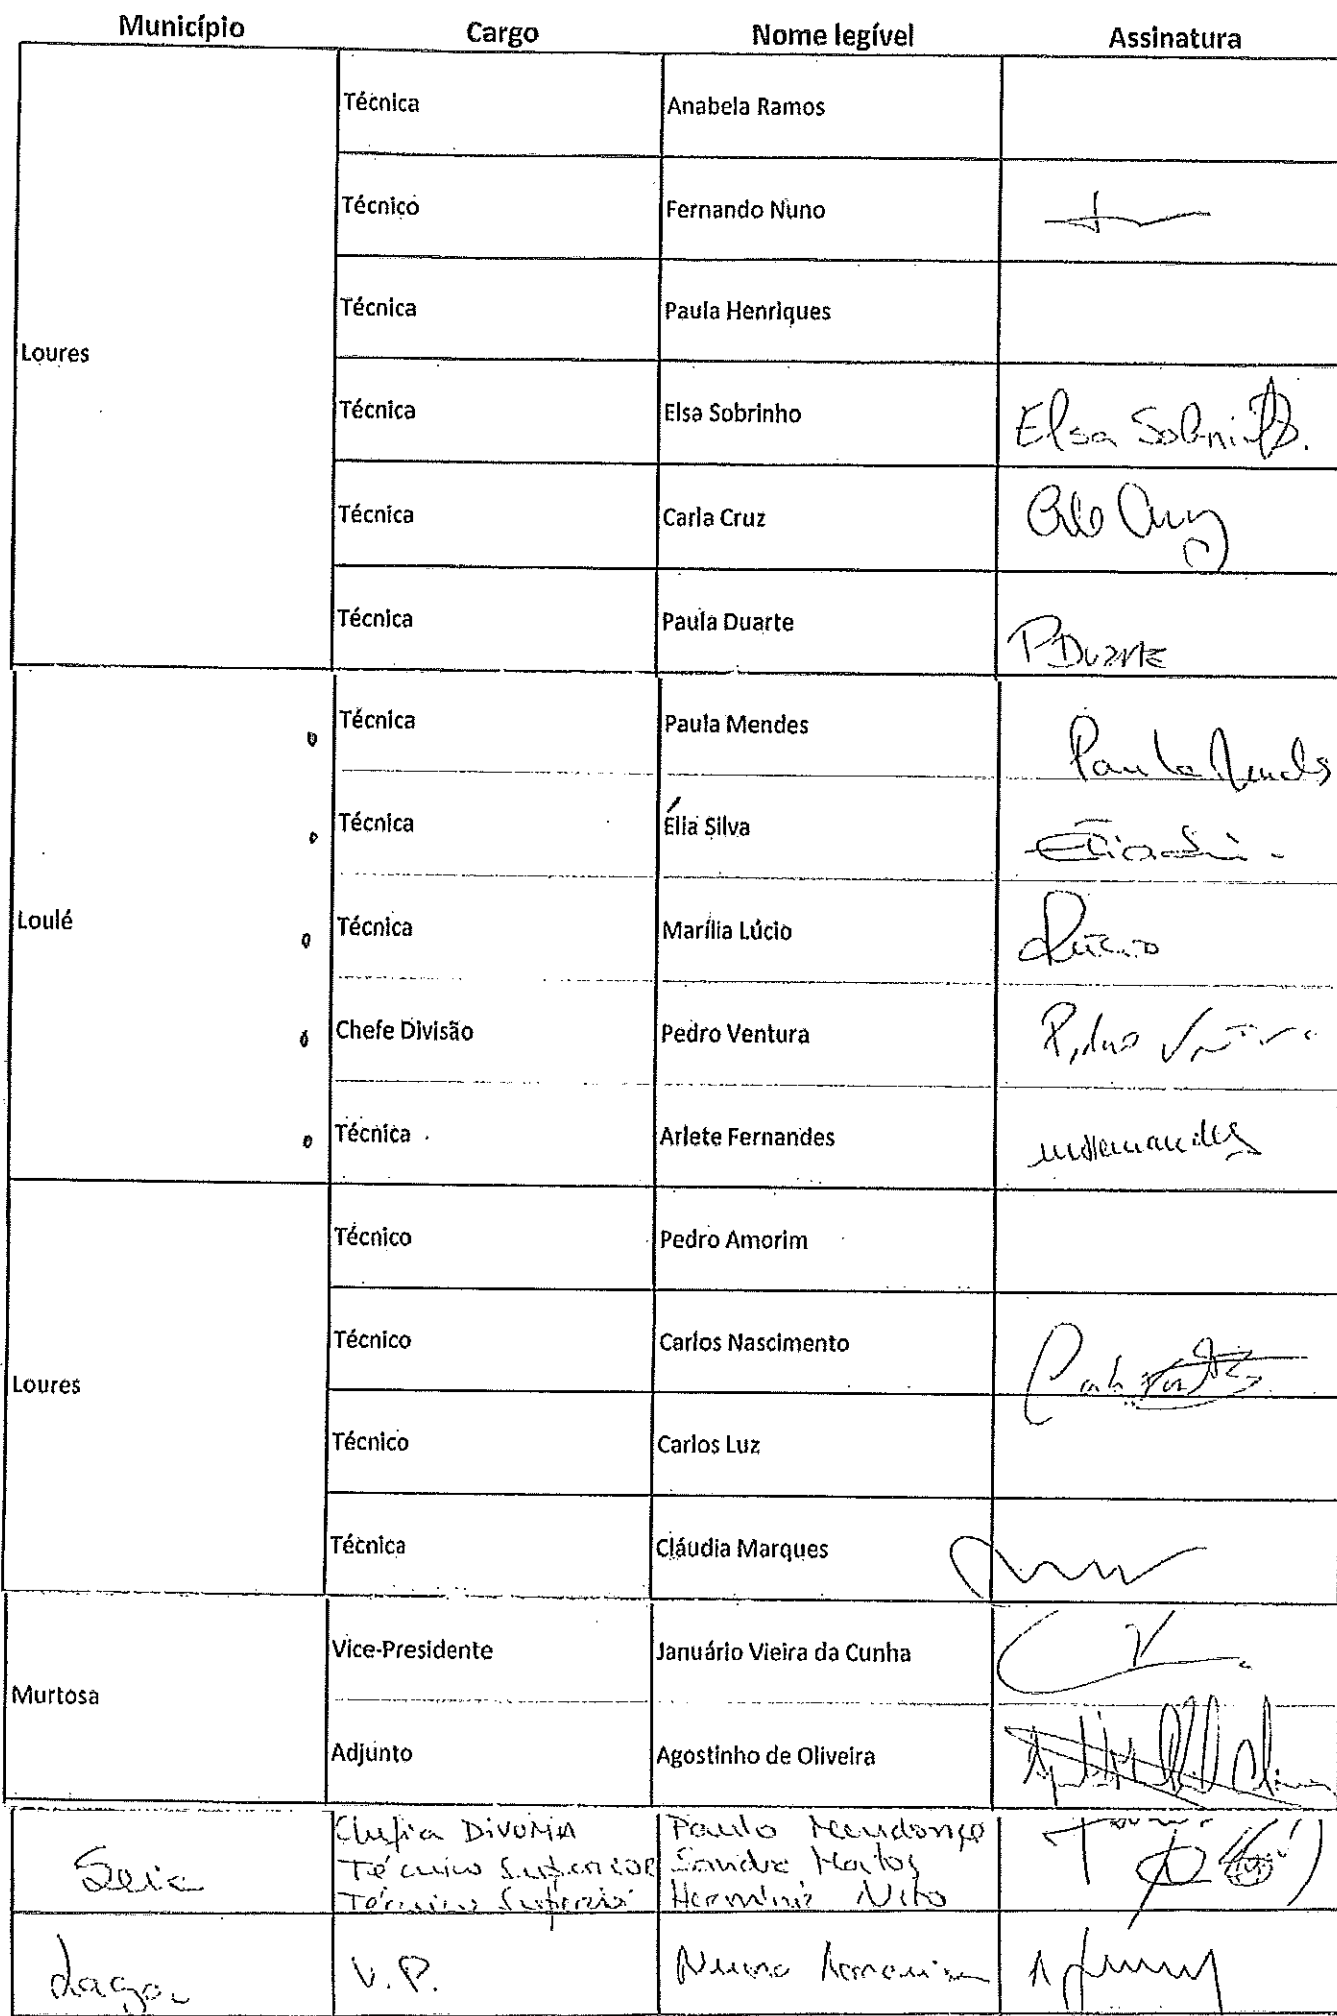 Município Cargo Nome legível Assinatura
Loures
Técnica Anabela Ramos
Técnico Fernando Nuno
Técnica Paula Henriques
Técnica Elsa Sobrinho Elsa Sobrinho
Técnica Carla Cruz Carla Cruz
Técnica Paula Duarte P Duarte
Loulé
Técnica Paula Mendes Paula Mendes
Técnica Élia Silva
Técnica Marília Lúcio Lúcio
Chefe Divisão Pedro Ventura Pedro Ventura
Técnica Arlete Fernandes
Loures
Técnico Pedro Amorim
Técnico Carlos Nascimento
Técnico Carlos Luz
Técnica Cláudia Marques
Murtosa
Vice-Presidente Januário Vieira da Cunha
Adjunto Agostinho de Oliveira
Seia
Paulo Mendonça
Técnico Superior Sandra Matos
Técnico Superior
Lagoa V.P. Nuno